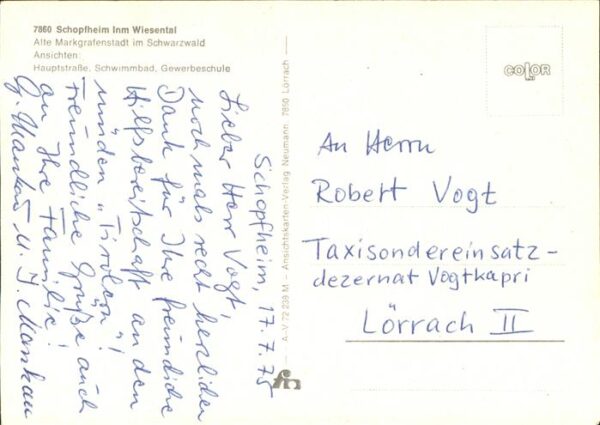 7860 Schopfheim Inm Wiesental
Alte Markgrafenstadt im Schwarzwald
Ansichten:
Hauptstraße, Schwimmbad, Gewerbeschule
Schopfheim, 17.7.75
Lieber Herr Vogt,
nochmals recht herzlichen
Dank für Ihre freundliche
Hilfsbereitschaft an den
müden "Tirolern"!
Freundliche Grüße auch
an Ihre Familie!
M. J. Mankau
A-V 72 239 M – Ansichtskarten-Verlag Neumann 7850 Lörrach
COLOR
An Herrn
Robert Vogt
Taxisondereinsatz-
dezernat Vogtkapri
Lörrach II